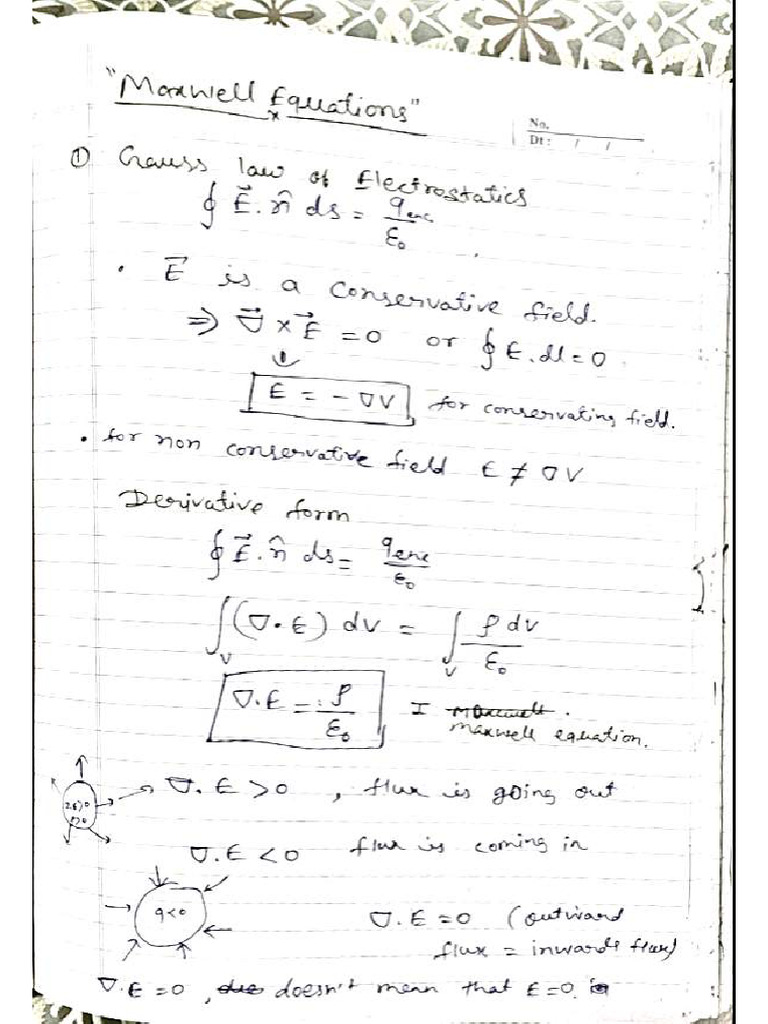 "Maxwell Equations"
No.
Dt: / /
① Gauss law of Electrostatics
∮ E⃗.n̂ ds = qenc/ε₀
• E⃗ is a conservative field.
⇒ ∇⃗ × E⃗ = 0 or ∮ E.dl = 0
⇓
E = - ∇V for conservating field.
• for non conservative field E ≠ ∇V
Derivative form
∮ E⃗.n̂ ds = qenc/ε₀
∫v (∇.E) dv = ∫v ρdv/ε₀
∇.E = ρ/ε₀ I Maxwell equation.
∇.E > 0 , flux is going out
∇.E < 0 flux is coming in
q<0
∇.E = 0 (outward
flux = inwards flux)
∇.E = 0 , doesn't mean that E = 0